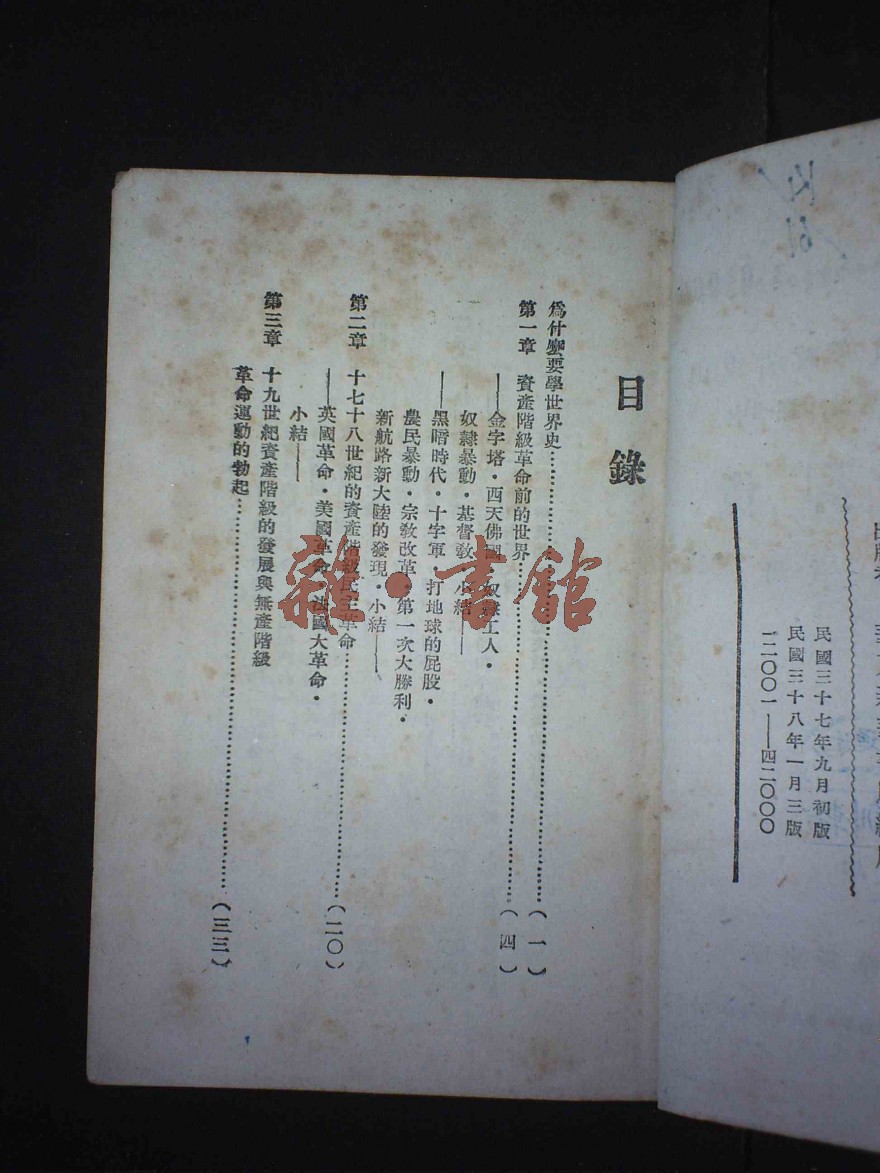 民國三十七年九月初版
民國三十八年一月三版
二二〇〇一——四二〇〇〇
目錄
爲什麼要學世界史……(一)
第一章 資產階級革命前的世界……(四)
——金字塔・西天佛國・奴隸工人・
奴隸暴動・基督敎・小結——
——黑暗時代・十字軍・打地球的屁股・
農民暴動・宗敎改革・第一次大勝利・
新航路新大陸的發現・小結——
第二章 十七十八世紀的資產階級民主革命……(二〇)
——英國革命・美國革命・法國大革命・
小結——
第三章 十九世紀資產階級的發展與無產階級
革命運動的勃起……(三三)
1
雜・書館